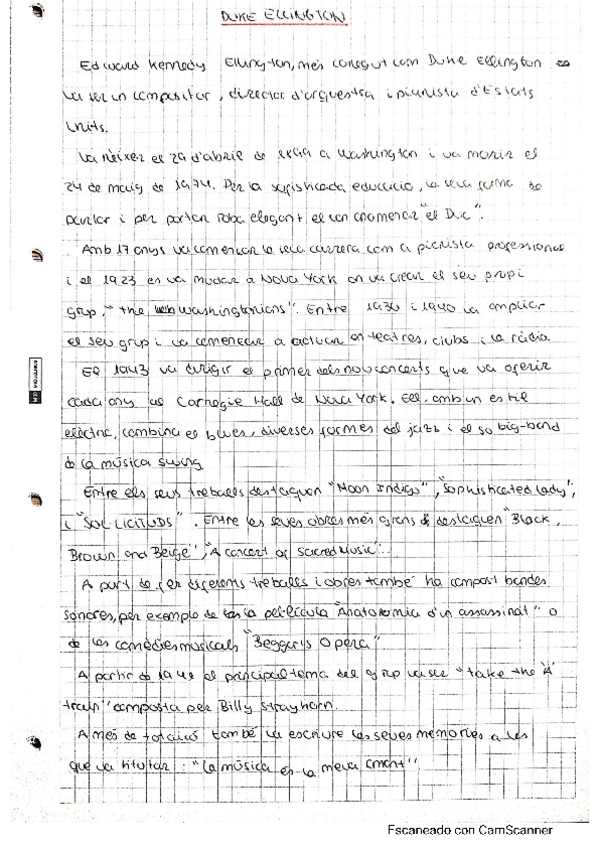 DUKE ELLINGTON
Edward Kennedy Ellington, més conegut com Duke Ellington
va ser un compositor, director d'orquestra i pianista d'Estats
Units.
Va néixer el 29 d'abril de 1899 a Washington i va morir el
24 de maig de 1974. Per la sofisticada educació, la seva forma de
parlar i per portar roba elegant el van anomenar "el Duc".
Amb 17 anys va començar la seva carrera com a pianista professional
i el 1923 es va mudar a Nova York on va crear el seu propi
grup, "the Washingtonians". Entre 1930 i 1940 va ampliar
el seu grup i va començar a actuar en teatres, clubs i la ràdio.
El 1943 va dirigir el primer dels nou concerts que va oferir
cada any al Carnegie Hall de Nova York. Ell, amb un estil
elèctric, combina el blues, diverses formes del jazz i el so big-band
de la música swing
Entre els seus treballs destaquen "Moon Indigo", "Sophisticated lady",
i "SOL·LICITUDS". Entre les seves obres més grans destaquen "Black,
Brown and Beige", "A concert of sacred Music".
A part de fer diferents treballs i obres també ha compost bandes
sonores, per exemple de la pel·lícula "Anatomia d'un assassinat" o
de les comèdies musicals "Beggar's Opera"
A partir de el principal tema del grup va ser "take the 'A'
train" composta per Billy Strayhorn.
A més de tot això també va escriure les seves memories a les
que va titular: "La música és la meva amant"
Escaneado con CamScanner